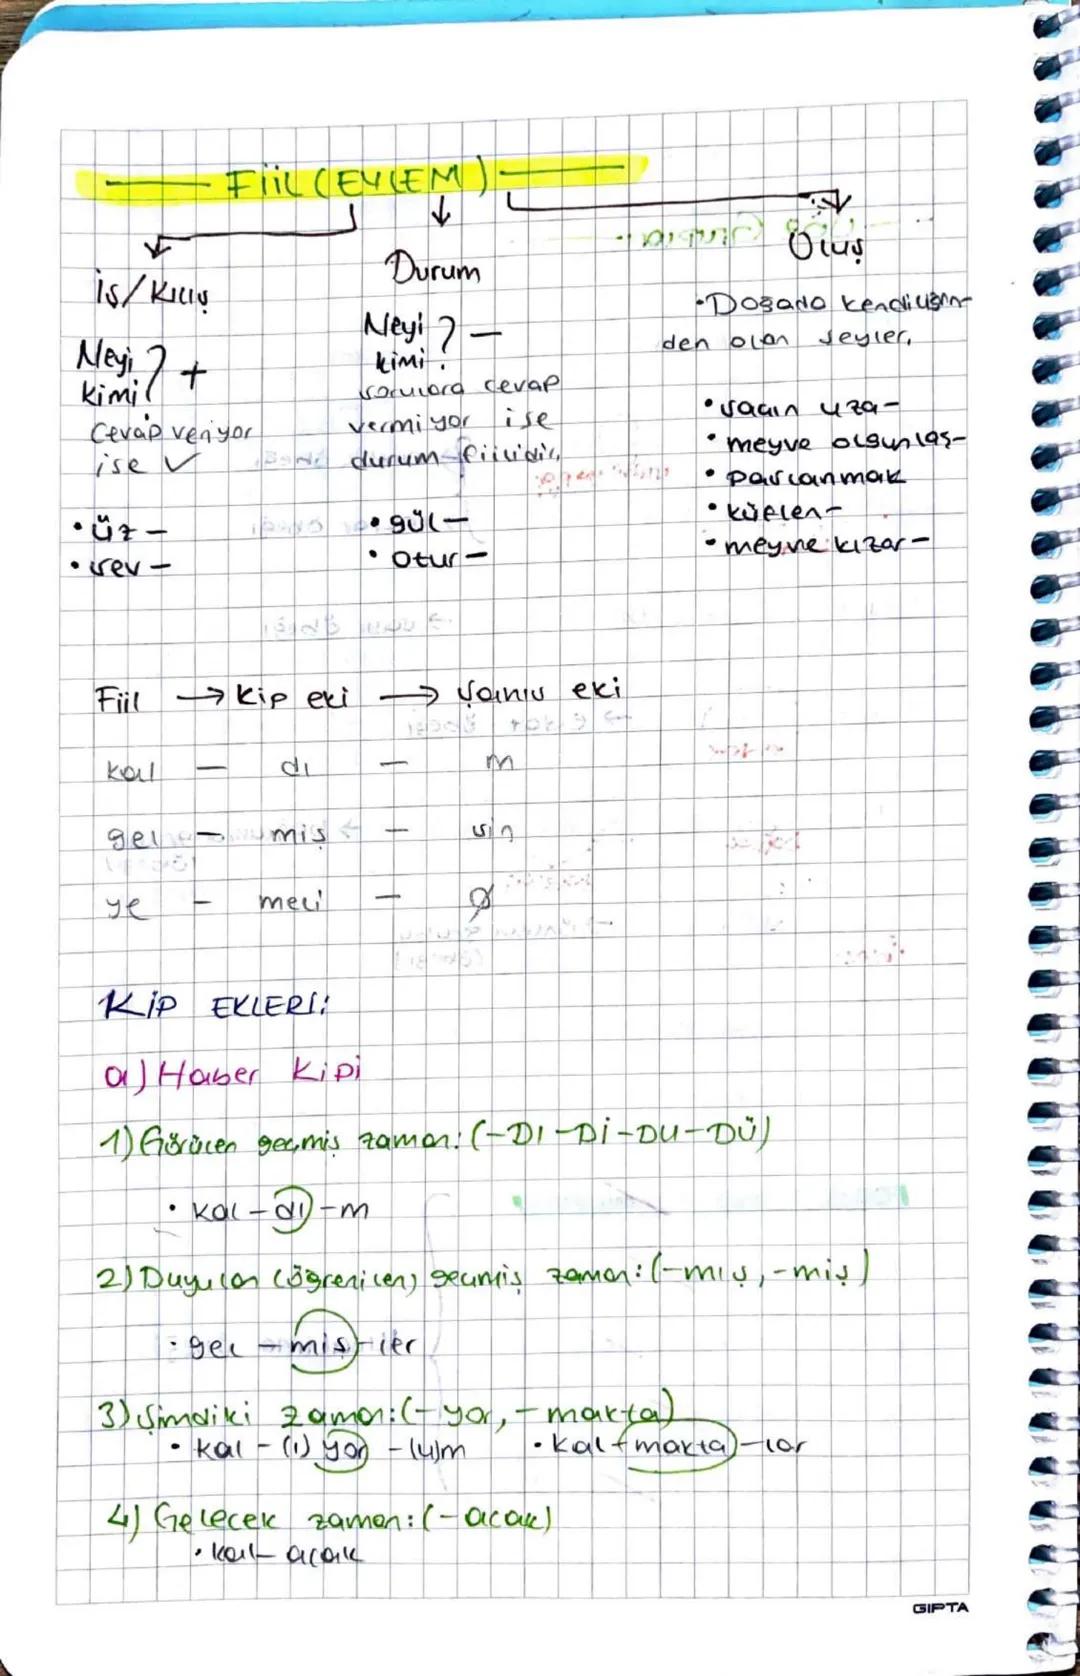 FİİL (EYLEM)
İş/Kılış
Neyi
kimi ? +
Cevap veriyor
ise ✓
• üz -
• sev -
Durum
Neyi
kimi ? -
sorulara cevap
vermiyor ise
durum fiilidir.
• gül -
• otur -
Oluş
• Doğada kendiliğin-
den olan şeyler.
• saçın uza-
• meyve olgunlaş-
• paslanmak
• küflen-
• meyve kızar-
Fiil → Kip eki → Şahıs eki
kal - dı - m
gel - miş - sin
ye - meli - Ø
KİP EKLERİ:
a) Haber Kipi
1) Görülen geçmiş zaman: (-DI -Dİ -DU -DÜ)
• kal - dı - m
2) Duyulan (öğrenilen) geçmiş zaman: (-mış, -miş)
• gel - miş - ler
3) Şimdiki zaman: (-yor, -makta)
• kal - (ı) yor - (u)m • kal - makta - lar
4) Gelecek zaman: (-acak)
• kal- acak
GIPTA